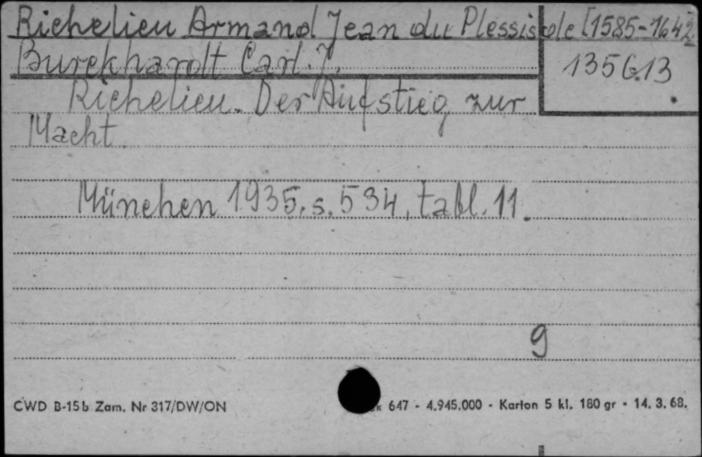 Richelieu Armand Jean du Plessis de [1585-1642
Burckhardt Carl. J.
135613
Richelieu. Der Aufstieg zur
Macht.
München 1935. s. 534, tabl. 11.
9
CWD B-15b Zam. Nr 317/DW/ON
647 - 4.945.000 - Karton 5 kl. 180 gr - 14. 3. 68.